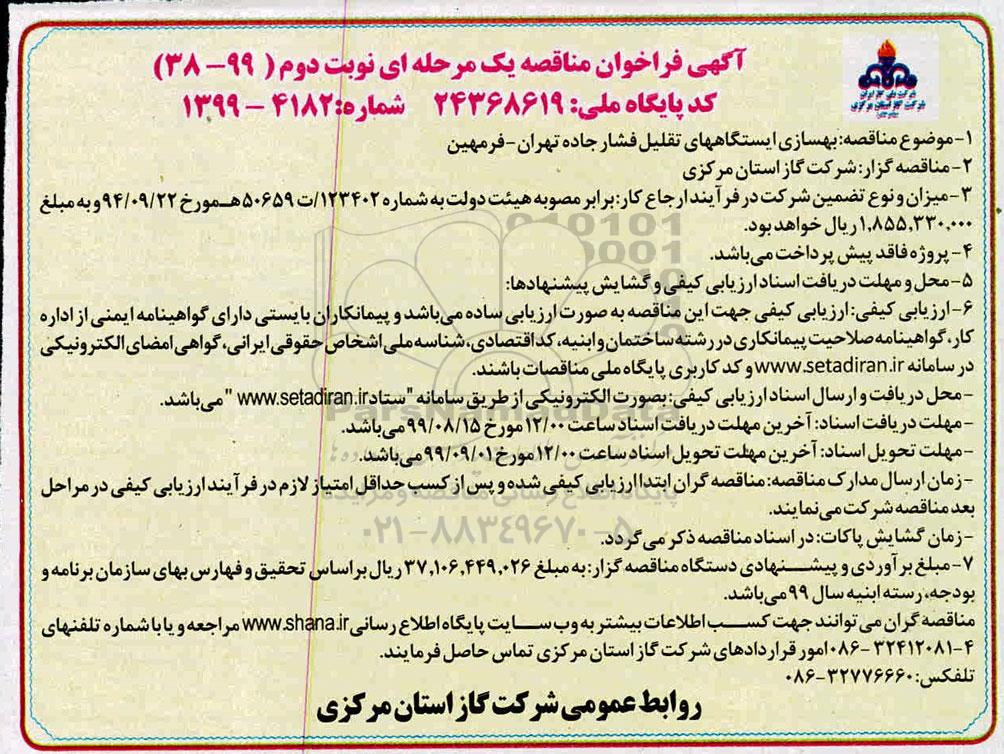 آگهی فراخوان مناقصه یک مرحله ای نوبت دوم ( ۹۹- ۳۸)
کد پایگاه ملی: ۲۴۳۶۸۶۱۹ شماره: ۴۱۸۲ - ۱۳۹۹
شرکت ملی گاز ایران
شرکت گاز استان مرکزی
۱-موضوع مناقصه: بهسازی ایستگاههای تقلیل فشار جاده تهران-فرمهین
۲-مناقصه گزار: شرکت گاز استان مرکزی
۳-میزان و نوع تضمین شرکت در فرآیند ارجاع کار: برابر مصوبه هیئت دولت به شماره ۱۲۳۴۰۲/ت ۵۰۶۵۹ هـ مورخ ۹۴/۰۹/۲۲ و به مبلغ
۱,۸۵۵,۳۳۰,۰۰۰ ریال خواهد بود.
۴- پروژه فاقد پیش پرداخت می‌باشد.
۵- محل و مهلت دریافت اسناد ارزیابی کیفی و گشایش پیشنهادها:
۶-ارزیابی کیفی: ارزیابی کیفی جهت این مناقصه به صورت ارزیابی ساده می‌باشد و پیمانکاران بایستی دارای گواهینامه ایمنی از اداره
کار، گواهینامه صلاحیت پیمانکاری در رشته ساختمان و ابنیه، کد اقتصادی، شناسه ملی اشخاص حقوقی ایرانی، گواهی امضای الکترونیکی
در سامانه www.setadiran.ir و کد کاربری پایگاه ملی مناقصات باشند.
-محل دریافت و ارسال اسناد ارزیابی کیفی: بصورت الکترونیکی از طریق سامانه "ستاد www.setadiran.ir " می‌باشد.
-مهلت دریافت اسناد: آخرین مهلت دریافت اسناد ساعت ۱۲/۰۰ مورخ ۹۹/۰۸/۱۵ می‌باشد.
-مهلت تحویل اسناد: آخرین مهلت تحویل اسناد ساعت ۱۲/۰۰ مورخ ۹۹/۰۹/۰۱ می‌باشد.
-زمان ارسال مدارک مناقصه: مناقصه گران ابتدا ارزیابی کیفی شده و پس از کسب حداقل امتیاز لازم در فرآیند ارزیابی کیفی در مراحل
بعد مناقصه شرکت می‌نمایند.
-زمان گشایش پاکات: در اسناد مناقصه ذکر می‌گردد.
۷- مبلغ برآوردی و پیشنهادی دستگاه مناقصه گزار: به مبلغ ۳۷,۱۰۶,۴۴۹,۰۲۶ ریال براساس تحقیق و فهارس بهای سازمان برنامه و
بودجه، رسته ابنیه سال ۹۹ می‌باشد.
مناقصه گران می‌توانند جهت کسب اطلاعات بیشتر به وب سایت پایگاه اطلاع رسانی www.shana.ir مراجعه و یا با شماره تلفنهای
۰۸۶- ۳۲۴۱۲۰۸۱-۴ امور قراردادهای شرکت گاز استان مرکزی تماس حاصل فرمایند.
تلفکس: ۰۸۶-۳۲۷۷۶۶۶۰
روابط عمومی شرکت گاز استان مرکزی
ParsNamadData
پایگاه اطلاع رسانی مناقصه و مزایده
۰۲۱-۸۸۳۴۹۶۷۰-۵